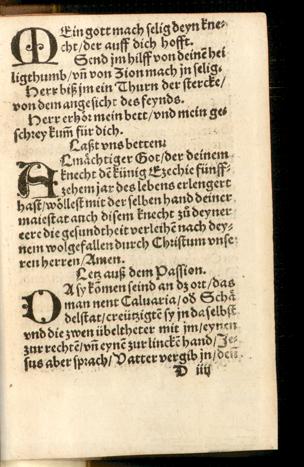 MEin gott mach selig deyn kne-
cht/der auff dich hofft.
Send jm hilff von deinē hei
ligthumb/vn̄ von Zion mach jn selig.
Herr biß jm ein Thurn der stercke/
von dem angesicht des feynds.
Herr erhör mein bett/vnd mein ge-
schrey kum̄ für dich.
Laßt vns betten:
ALmächtiger Got/der deinem
knecht dē künig Ezechie fünff-
zehem jar des lebens erlengert
hast/wöllest mit der selben hand deiner
maiestat auch disem knecht zů deyner
eere die gesundtheit verleihē nach dey-
nem wolgefallen durch Christum vnse
ren herren/Amen.
Letz auß dem Passion.
DA sy kōmen seind an dz ort/das
man nent Caluaria/od Schä
delstat/creützigtē sy jn da selbst
vnd die zwen übeltheter mit jm/eynen
zur rechtē/vn̄ eynē zur linckē hand/Je-
sus aber sprach/Vatter vergib jn/den̄
D iiij